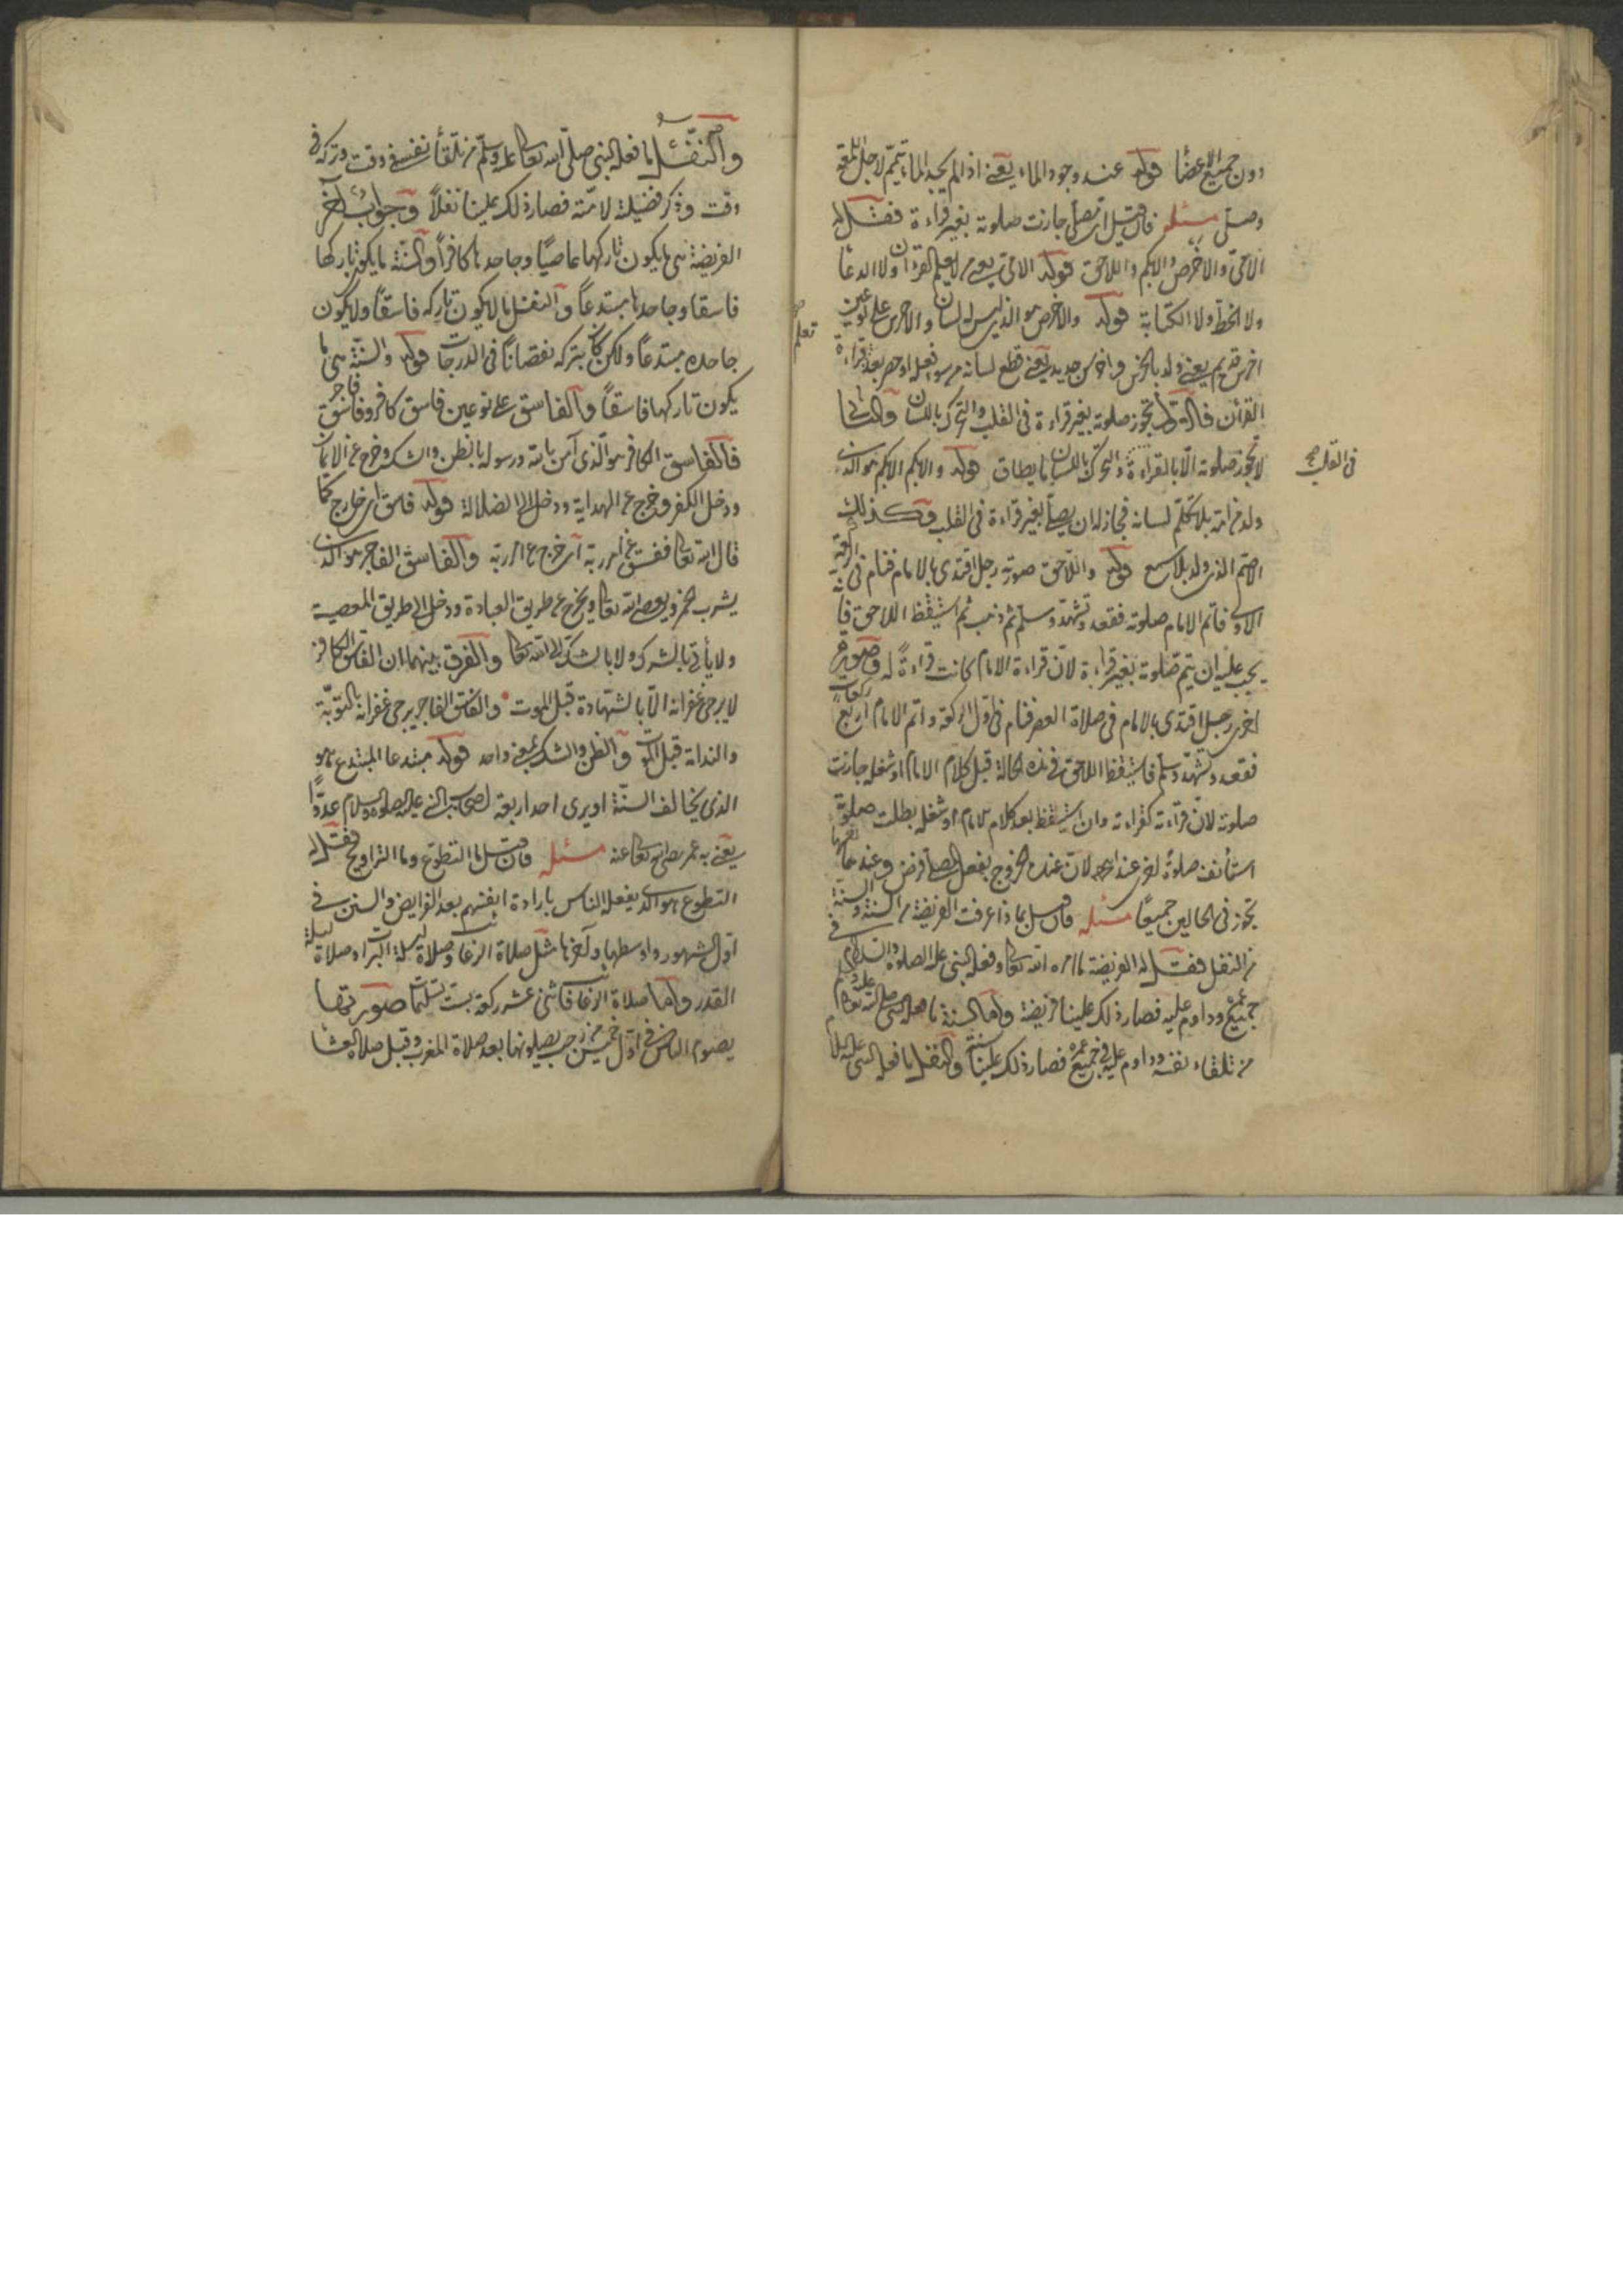 دون جميع الاعضا قوله عند وجود الماء يعني اذا لم يجد الماء تيمم لاجل اللمعة
وصلى مسئله فان قيل اي مصل جازت صلوته بغير قراءة فقل له
الامى والاخرص والابكم واللاحق قوله الامى يعنى من لا يعلم القرآن ولا الدعا
ولا الخط ولا الكتابة قوله والاخرص هو الذى ليس له لسان والاخرس على نوعين
اخرس قديم يعني ولد بالخرس واخرس جديد يعني قطع لسانه من سوء فعله او حصر بعد قراءة
تعلم
القرآن فالاول تجوز صلوته بغير قراءة في القلب والتحرك باللسان والثانى
لا تجوز صلوته الا بالقراءة والتحرك باللسان ما يطاق قوله والابكم الابكم هو الذى
في القلب صح
ولد من امه بلا تكلم لسانه فجاز له ان يصلى بغير قراءة في القلب وكذلك
الاصم الذى ولد بلا سمع قوله واللاحق صورته رجل اقتدى بالامام فنام في الركعة
الاولى فاتم الامام صلوته فقعد وتشهد وسلم ثم ذهب ثم استيقظ اللاحق فا
يجب عليه ان يتم صلوته بغير قراءة لان قراءة الامام كانت قراءة له وصورة
اخرى رجل اقتدى بالامام في صلاة العصر فنام في اول الركعة واتم الامام اربع ركعات
فقعد وتشهد وسلم فاستيقظ اللاحق في هذه الحالة قبل كلام الامام او شغله جازت
صلوته لان قراءته كقراءته وان استيقظ بعد كلام الامام او شغله بطلت صلوته
استأنف صلوة اخرى عند ابى لان عنده الخروج بفعل المصلى فرض وعندهما
تجوز في الحالين جميعا مسئله فان قيل بماذا عرفت الفريضة من السنة والسنة
من النفل فقل له الفريضة ما امره الله تعالى وفعله النبى عليه الصلوة والسلام في
جميع عمره وداوم عليه فصار ذلك علينا فريضة واما السنة ما فعله النبى صلى الله تعالى عليه وسلم
من تلقاء نفسه وداوم عليه في جميع عمره فصار ذلك علينا سنة والنفل ما فعله النبى عليه السلام
والنفل ما فعله النبى صلى الله تعالى عليه وسلم من تلقأ نفسه في وقت وتركه في
وقت وذكر فضيلته لامته فصار ذلك علينا نفلاً وجواب آخر
الفريضة هى ما يكون تاركها عاصيًا وجاحدها كافراً والسنة ما يكون تاركها
فاسقا وجاحدها مبتدعاً والنفل ما لا يكون تاركه فاسقاً ولا يكون
جاحده مبتدعاً ولكن كان بتركه نقصاناً في الدرجات قوله والسنة هى ما
يكون تاركها فاسقاً والفاسق على نوعين فاسق كافر وفاسق فاجر
فالفاسق الكافر هو الذى آمن بالله ورسوله بالظن والشك وخرج عن الايمان
ودخل الكفر وخرج عن الهداية ودخل الى الضلالة قوله فاسق اى خارج كما
قال الله تعالى ففسق عن امر ربه اى خرج عن امر ربه والفاسق الفاجر هو الذى
يشرب الخمر ويعصى الله تعالى ويخرج عن طريق العبادة ودخل الى طريق المعصية
ولا يأتى بالشرك ولا بالشك الى الله تعالى والفرق بينهما ان الفاسق الكافر
لا يرجى غفرانه الا بالشهادة قبل الموت والفاسق الفاجر يرجى غفرانه بالتوبة
والندامة قبل الموت والظن والشك بمعنى واحد قوله مبتدعا المبتدع هو
الذى يخالف السنة او يرى احد اربعة اصحاب النبى عليه الصلوة والسلام عدوًا
يعنى به عمر رضى الله تعالى عنه مسئله فان قيل ما التطوع وما التراويح فقل له
التطوع هو الذى يفعله الناس بارادة انفسهم بعد الفرايض والسنن في
اول الشهور واوسطها وآخرها مثل صلاة الرغائب وصلاة ليلة البرات وصلاة ليلة
القدر واما صلاة الرغائب فاثنى عشر ركعة بست تسليمات صورتها
يصوم الناس في اول خميس من رجب يصلونها بعد صلاة المغرب وقبل صلاة العشا